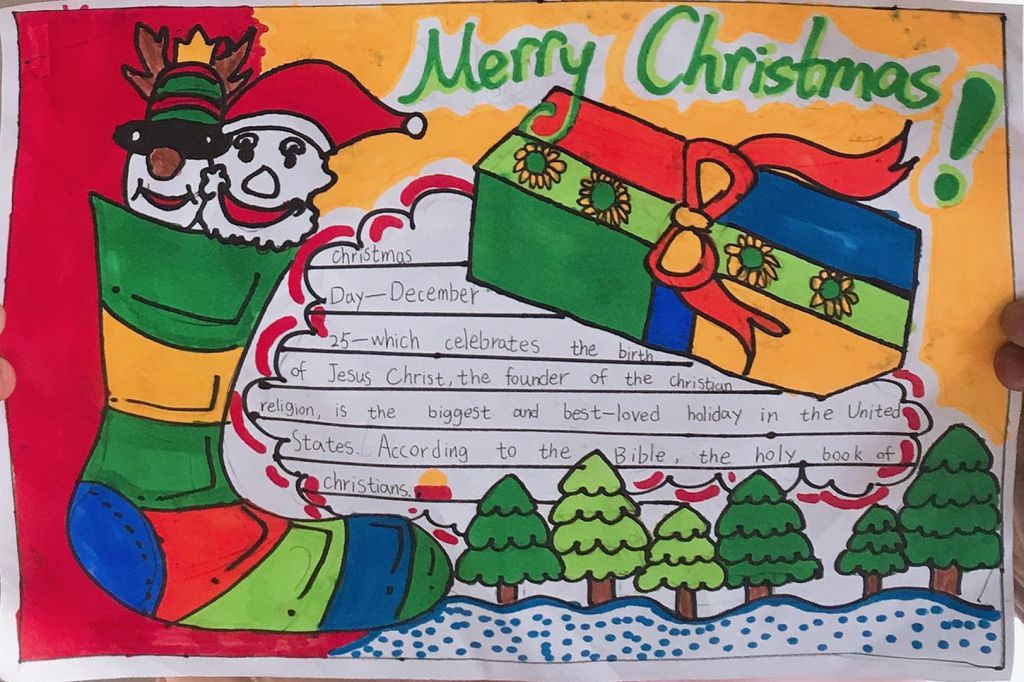 Merry Christmas!
christmas
Day—December
25—which celebrates the birth
of Jesus Christ, the founder of the christian
religion, is the biggest and best-loved holiday in the United
States. According to the Bible, the holy book of
christians.